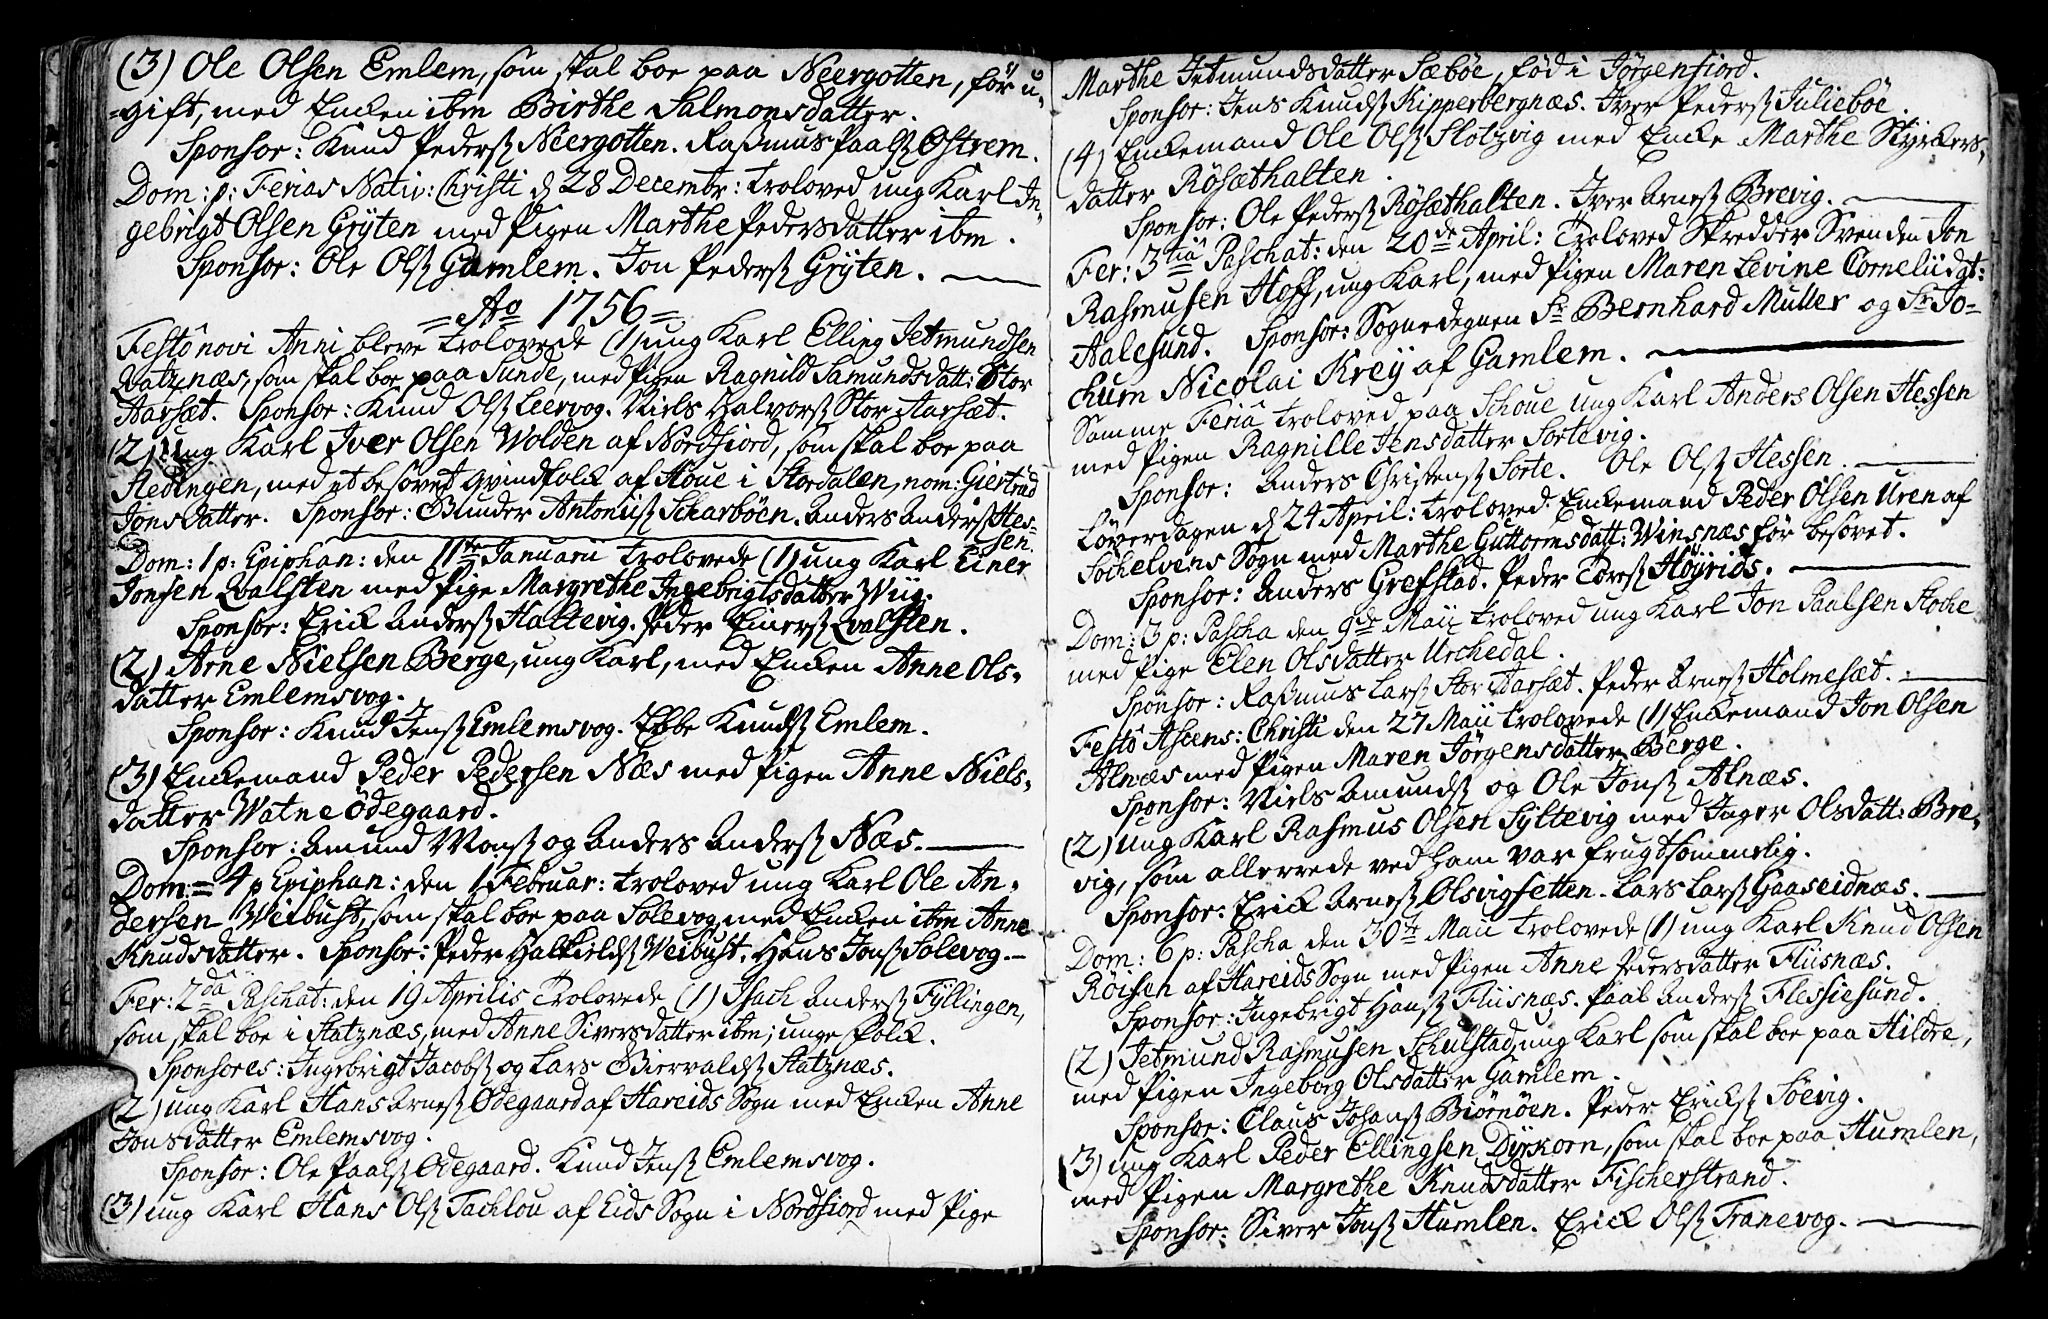 (3) Ole Olsen Emlem, som skal boe paa Neergotten, før u-
-gift, med Encken ibm Birthe Salmonsdatter.
Sponsor: Knud Pederß Neergotten. Raßmus Paalß Østrem.
Dom: p: Ferias Nativ: Christi d 28 Decembr: troloved ung Karl In-
gebrigt Olsen Grÿten med Pigen Marthe Pedersdatter ibm.
Sponsor: Ole Olß Gamlem. Jon Pederß Grÿten.
= Ao 1756 =
Festo novi Anni bleve trolovede (1) ung Karl Elling Jetmundsen
Ratznæs, som skal boe paa Sunde, med Pigen Ragnild Samundsdatt: Stor
Aarsæt. Sponsor: Knud Olß Leervog. Niels Halvorß Stor Aarsæt.
(2) Ung Karl Iver Olsen Wolden af Nordfiord, som skal boe paa
Hedingen, med et besovet qvindfolk af Houe i Stordalen, nom: Giertrud
Jonsdatter. Sponsor: Gunder Antoniiß Scharbøen. Anders Anderß Hes-
sen.
Dom: 1 p: Epiphan: den 11te Januarii trolovede (1) ung Karl Einer
Jonsen Qvalsten med Pige Margrethe Ingebrigtsdatter Wiig.
Sponsor: Erick Anderß Haltevig. Peder Einerß Qvalsten.
(2) Arne Nielsen Berge, ung Karl, med Encken Anne Ols-
datter Emlemsvog.
Sponsor: Knud Jenß Emlemsvog. Ebbe Knudß Emlem.
(3) Enckemand Peder Pedersen Næs med Pigen Anne Niels-
datter Watne Ødegaard.
Sponsor: Amund Monß og Anders Anderß Næs.
Dom: = 4 p Epiphan: den 1 Februar: troloved ung Karl Ole An-
dersen Weibust, som skal boe paa Solevog med Encken ibm Anne
Knudsdatter. Sponsor: Peder Halkieldß Weibust. Hans Jonß Solevog.
Fer: 2da Paschat: den 19 Aprilis trolovede (1) Isach Anderß Fÿllingen,
som skal boe i Statznæs, med Anne Siversdatter ibm; unge folck.
Sponsores: Ingebrigt Jacobß og Lars Biervaldß Statznæs.
(2) ung Karl Hans Arneß Ødegaard af Hareids Sogn med Encken Anne
Jonsdatter Emlemsvog.
Sponsor: Ole Paalß Ødegaard. Knud Jenß Emlemsvog.
(3) ung Karl Hans Olß Tachlou af Eids Sogn i Nordfiord med Pige
Marthe Jetmundsdatter Sæbøe, fød i Jørgenfiord.
Sponsor: Jens Knudß Kipperbergnæs. Iver Pederß Juliebøe.
(4) Enckemand Ole Olß Slotzvig med Encke Marthe Stÿrkers-
datter Røsæthalten.
Sponsor: Ole Pederß Røsæthalten. Iver Arneß Brevig.
Fer: 3tia Paschat: den 20de April: Troloved Skredder Svenden Jon
Rasmusen Hoff, ung Karl, med Pigen Maren Levine Corneliidgt:
Aalesund. Sponsor: Sognedegnen Sr Bernhard Muller og Sr Jo-
chum Nicolai Kreÿ af Gamlem.
Samme Feria troloved paa Schoue ung Karl Anders Olsen Hessen
med Pigen Ragnille Jensdatter Sortevig.
Sponsor: Anders Christenß Sorte. Ole Olß Hessen.
Løverdagen d 24 April: troloved Enckemand Peder Olsen Uren af
Sochelvens Sogn med Marthe Guttormsdatt: Winsnæs før besovet.
Sponsor: Anders Grefstad. Peder Toreß Høÿrids.
Dom: 3 p: Pascha den 9de Maii troloved ung Karl Jon Paalsen Hoche
med Pige Elen Olsdatter Urchedal.
Sponsor: Raßmus Larß Stor Aarsæt. Peder Arneß Holmesæt.
Festo Ascens: Christi den 27 Maii trolovede (1) Enckemand Jon Olsen
Alnæs med Pigen Maren Jørgensdatter Berge.
Sponsor: Niels Amundß og Ole Jonß Alnæs.
(2) ung Karl Rasmus Olsen Sÿltevig med Inger Olsdatt: Bre-
vig, som allerrede ved ham var frugtsommelig.
Sponsor: Erick Arneß Olsvigsetten. Lars Larß Gaaseidnæs.
Dom: 6 p: Pascha den 30te Maii trolovede (1) ung Karl Knud Olsen
Røisen af Hareids Sogn med Pigen Anne Pedersdatter Fliisnæs.
Sponsor: Ingebrigt Hanß Fliisnæs. Paal Anderß Flessiesund.
(2) Jetmund Rasmusen Schulstad, ung Karl som skal boe paa Hildre,
med Pigen Ingeborg Olsdatter Gamlem.
Sponsor: Claus Johanß Biørnøen. Peder Erickß Søevig.
(3) ung Karl Peder Ellingsen Dÿrkorn, som skal boe paa Humlen,
med Pigen Margrethe Knudsdatter Fischerstrand.
Sponsor: Siver Jonß Humlen. Erick Olß Tranevog.